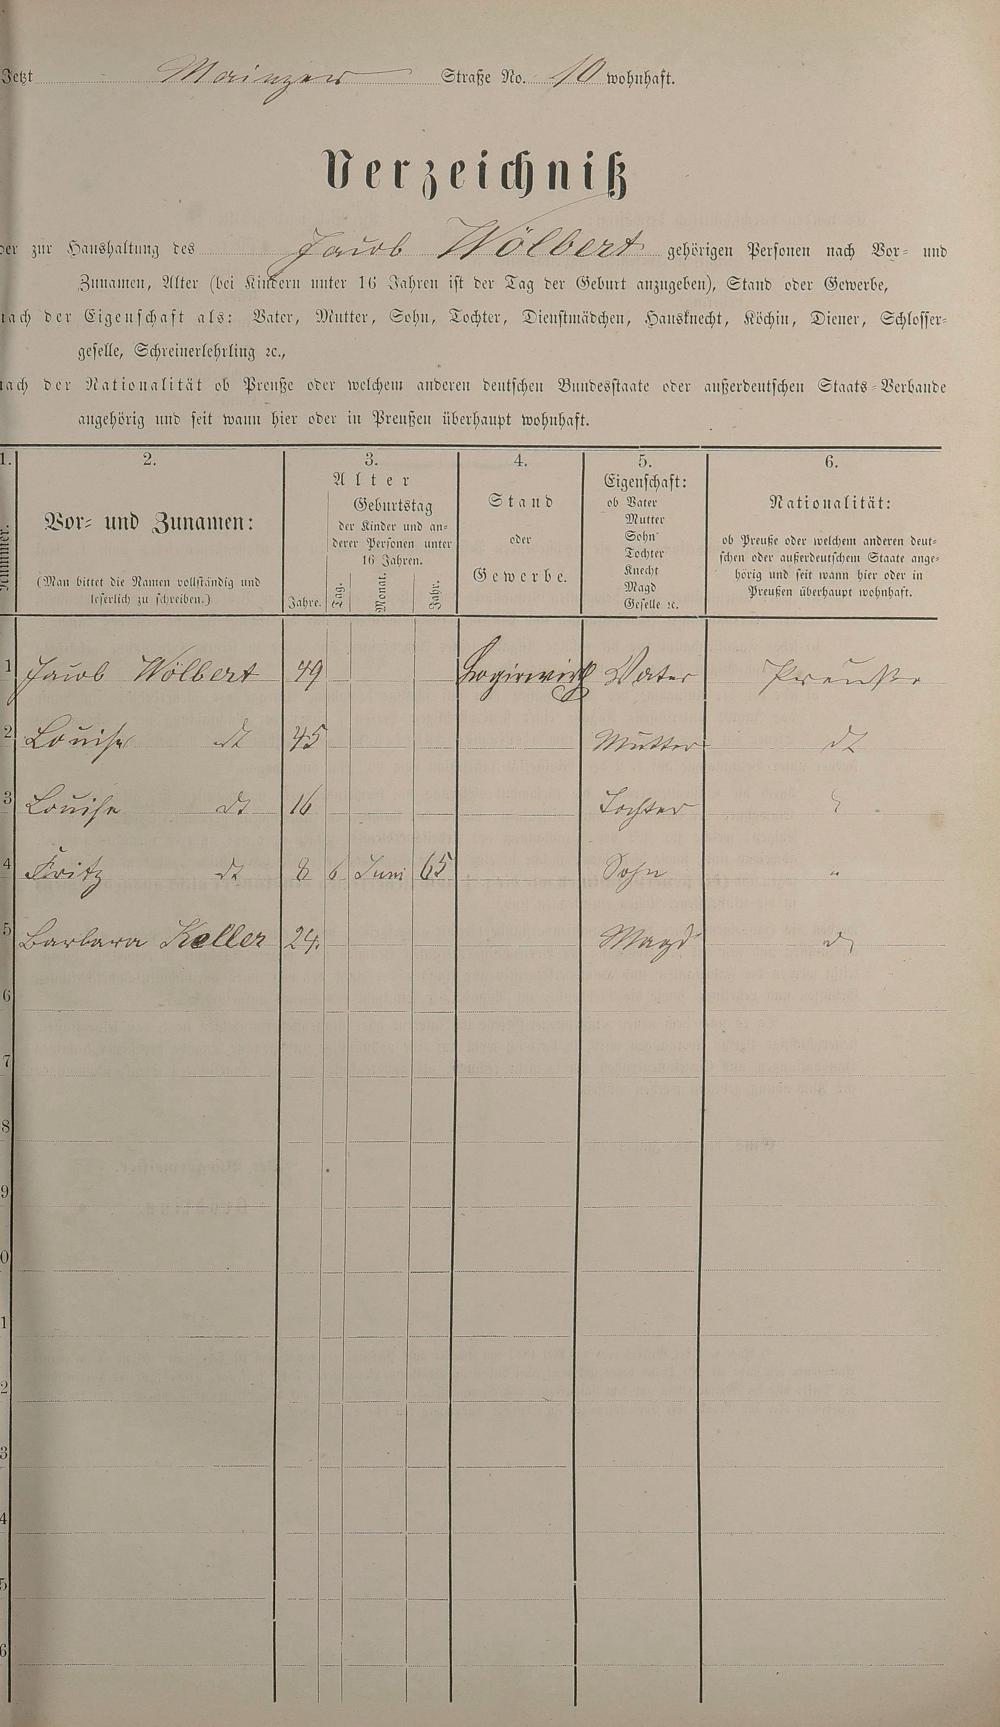 Jetzt Mainzer Straße No. 10 wohnhaft.
Verzeichniß
der zur Haushaltung des Jacob Wölbert gehörigen Personen nach Vor- und
Zunamen, Alter (bei Kindern unter 16 Jahren ist der Tag der Geburt anzugeben), Stand oder Gewerbe,
nach der Eigenschaft als: Vater, Mutter, Sohn, Tochter, Dienstmädchen, Hausknecht, Köchin, Diener, Schlosser-
geselle, Schreinerlehrling ꝛc.,
nach der Nationalität ob Preuße oder welchem anderen deutschen Bundesstaate oder außerdeutschen Staats-Verbande
angehörig und seit wann hier oder in Preußen überhaupt wohnhaft.
1. 2. 3. 4. 5. 6.
Nummer.
Vor- und Zunamen:
(Man bittet die Namen vollständig und
leserlich zu schreiben.)
Alter
Geburtstag
der Kinder und an-
derer Personen unter
16 Jahren.
Jahre. Tag. Monat. Jahr.
Stand
oder
Gewerbe.
Eigenschaft:
ob Vater
Mutter
Sohn
Tochter
Knecht
Magd
Geselle ꝛc.
Nationalität:
ob Preuße oder welchem anderen deut-
schen oder außerdeutschem Staate ange-
hörig und seit wann hier oder in
Preußen überhaupt wohnhaft.
1 Jacob Wölbert 49 Logirwirth Vater Preuße
2 Louise dt 45 Mutter dt
3 Louise dt 16 Tochter
4 Fritz dt 8 6 Juni 65 Sohn "
5 Barbara Keller 24. Magd d
6
7
8
9
0
1
2
3
4
5
6